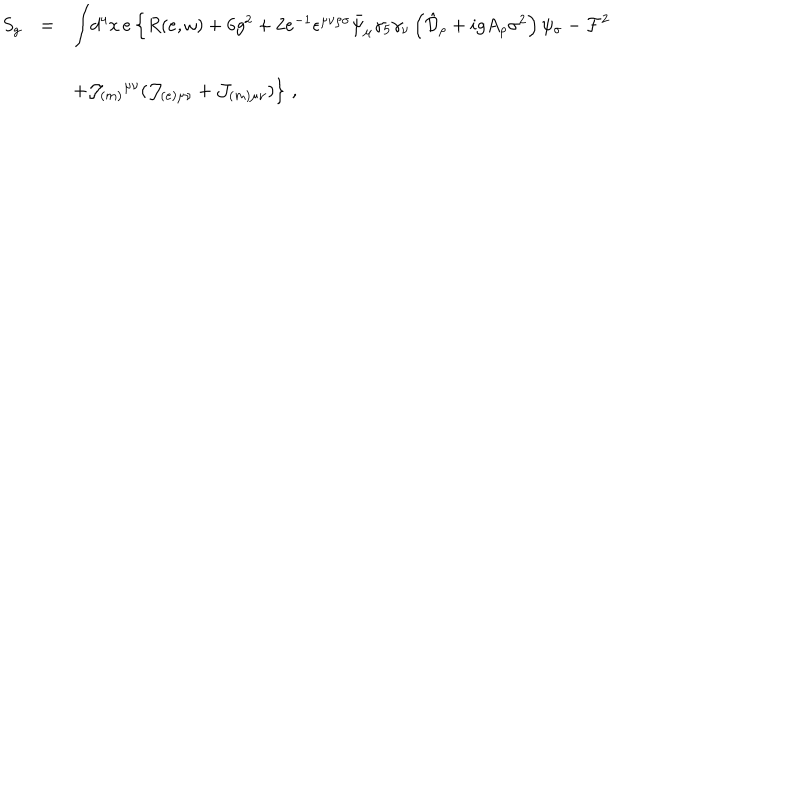 S_g = ∫d⁴x e { R(e,ω) + 6g² + 2e⁻¹ε^{μνρσ} ψ̄_μ γ₅γ_ν ( 𝒟̂_ρ + igA_ρσ² ) ψ_σ − ℱ²
+𝒥_{(m)}^{μν}(𝒥_{(e)μν} + 𝒥_{(m)μν})} ,